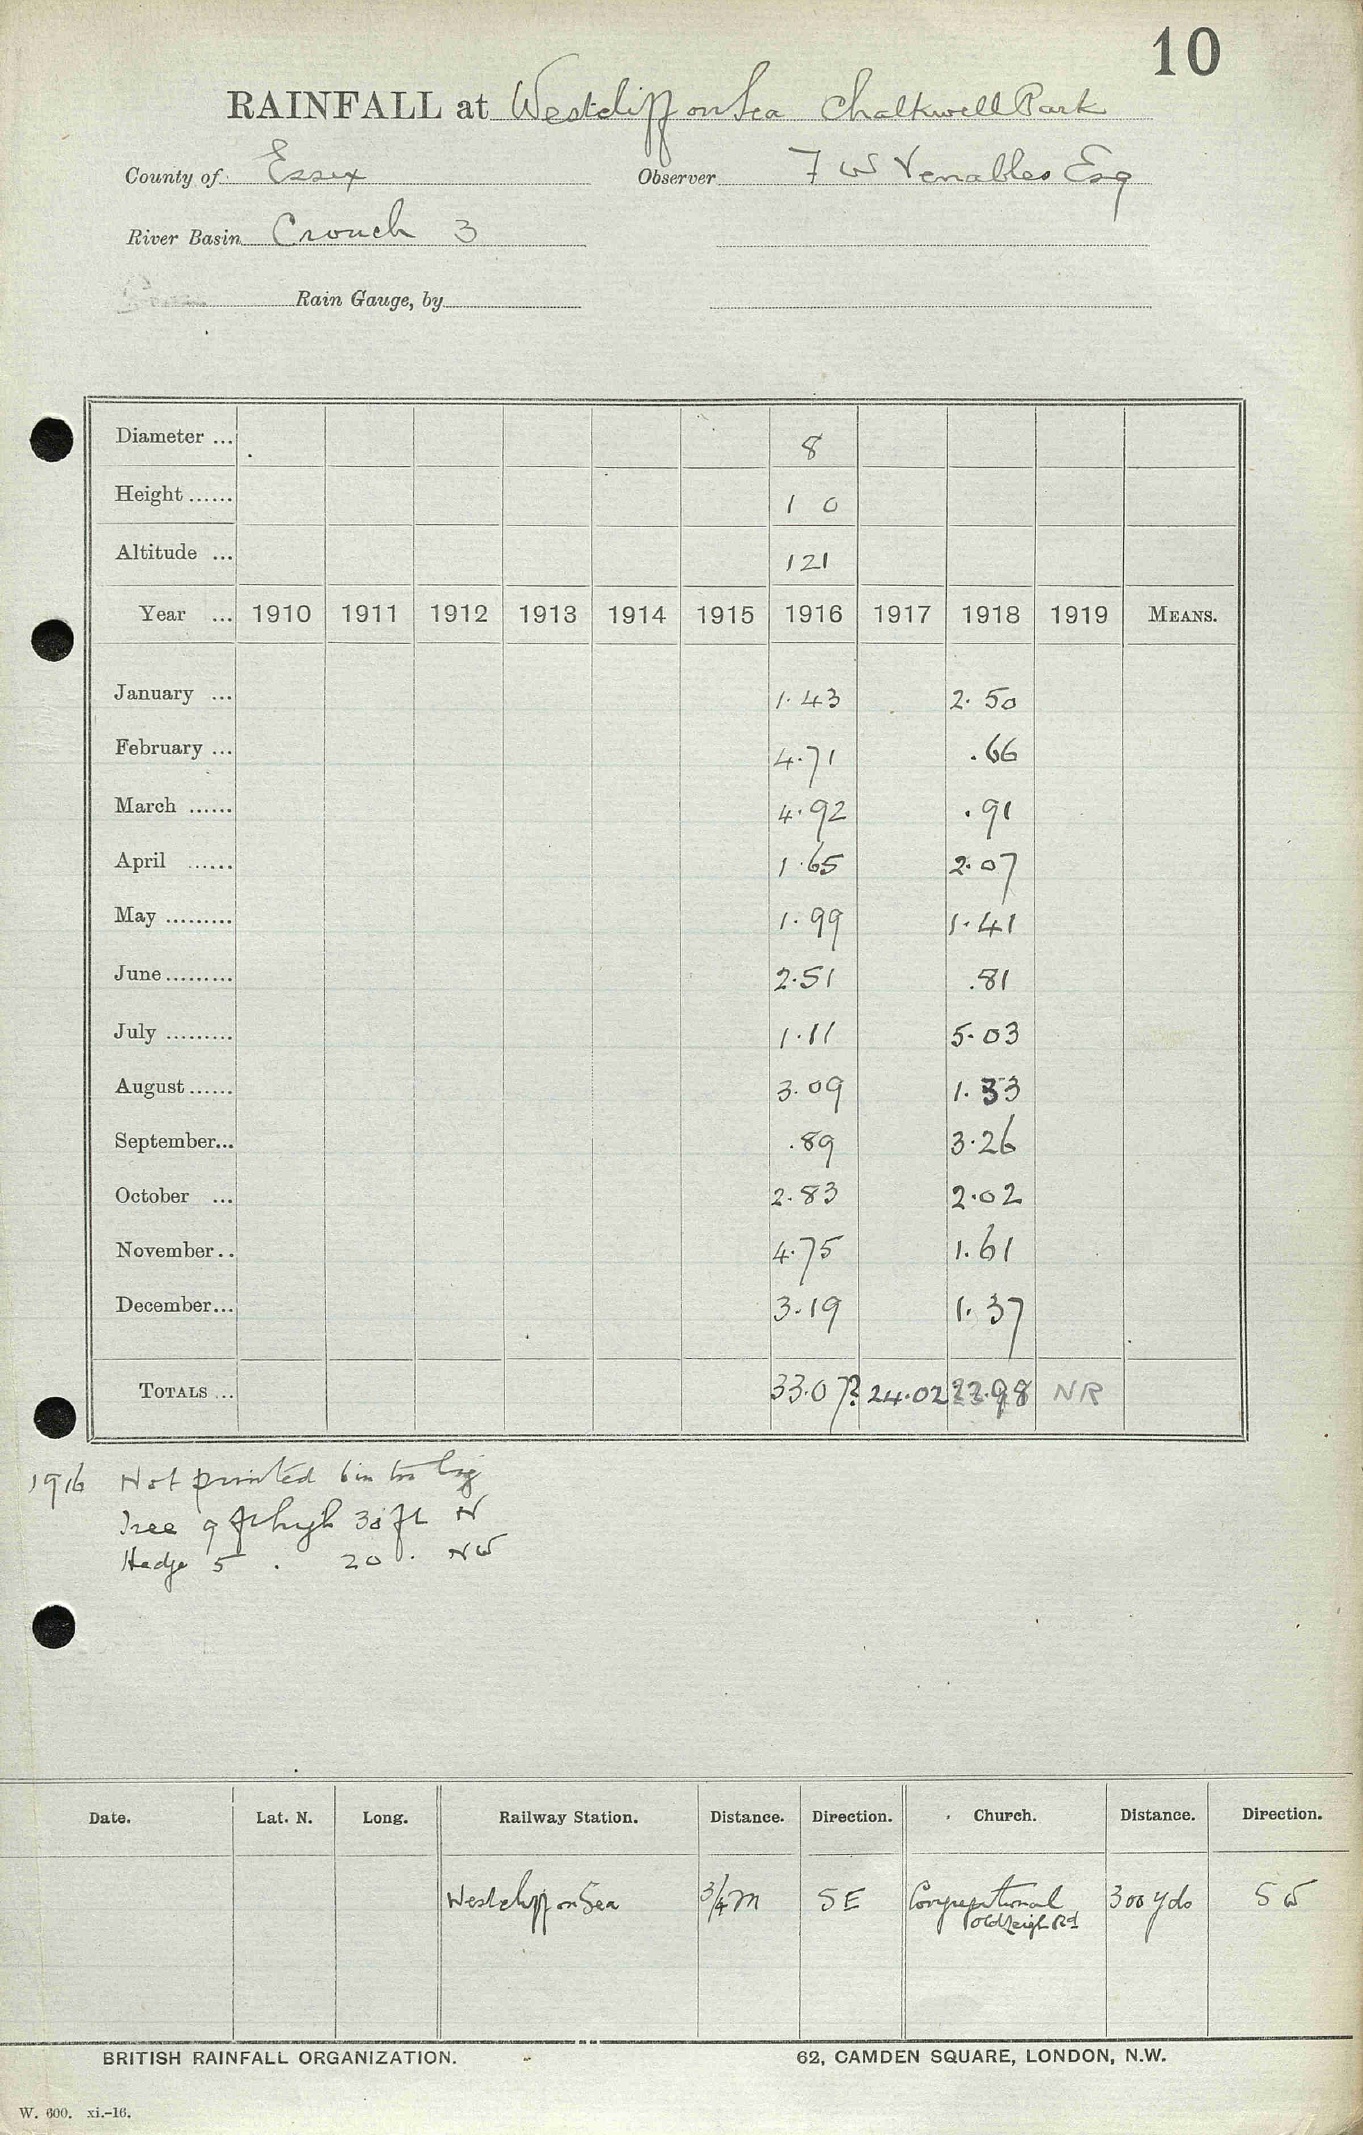 10
RAINFALL at Westcliff on Sea Chalkwell Park
County of Essex Observer F W Venables Esq
River Basin Crouch 3
Rain Gauge, by
Diameter ... 8
Height ...... 1 0
Altitude ... 121
Year ... 1910 1911 1912 1913 1914 1915 1916 1917 1918 1919 MEANS.
January ... 1.43 2.50
February ... 4.71 .66
March ...... 4.92 .91
April ...... 1.65 2.07
May ......... 1.99 1.41
June ......... 2.51 .81
July ......... 1.11 5.03
August ...... 3.09 1.33
September... .89 3.26
October ... 2.83 2.02
November .. 4.75 1.61
December... 3.19 1.37
TOTALS ... 33.07? 24.02 22.98 NR
1916 Not printed 6 in too big
Tree 9 ft high 30 ft N
Hedge 5 . 20 . NW
Date. Lat. N. Long. Railway Station. Distance. Direction. Church. Distance. Direction.
Westcliff on Sea 3/4 m SE Congregational 300 yds SW
Old Leigh Rd
BRITISH RAINFALL ORGANIZATION. 62, CAMDEN SQUARE, LONDON, N.W.
W. 600. xi.-16.